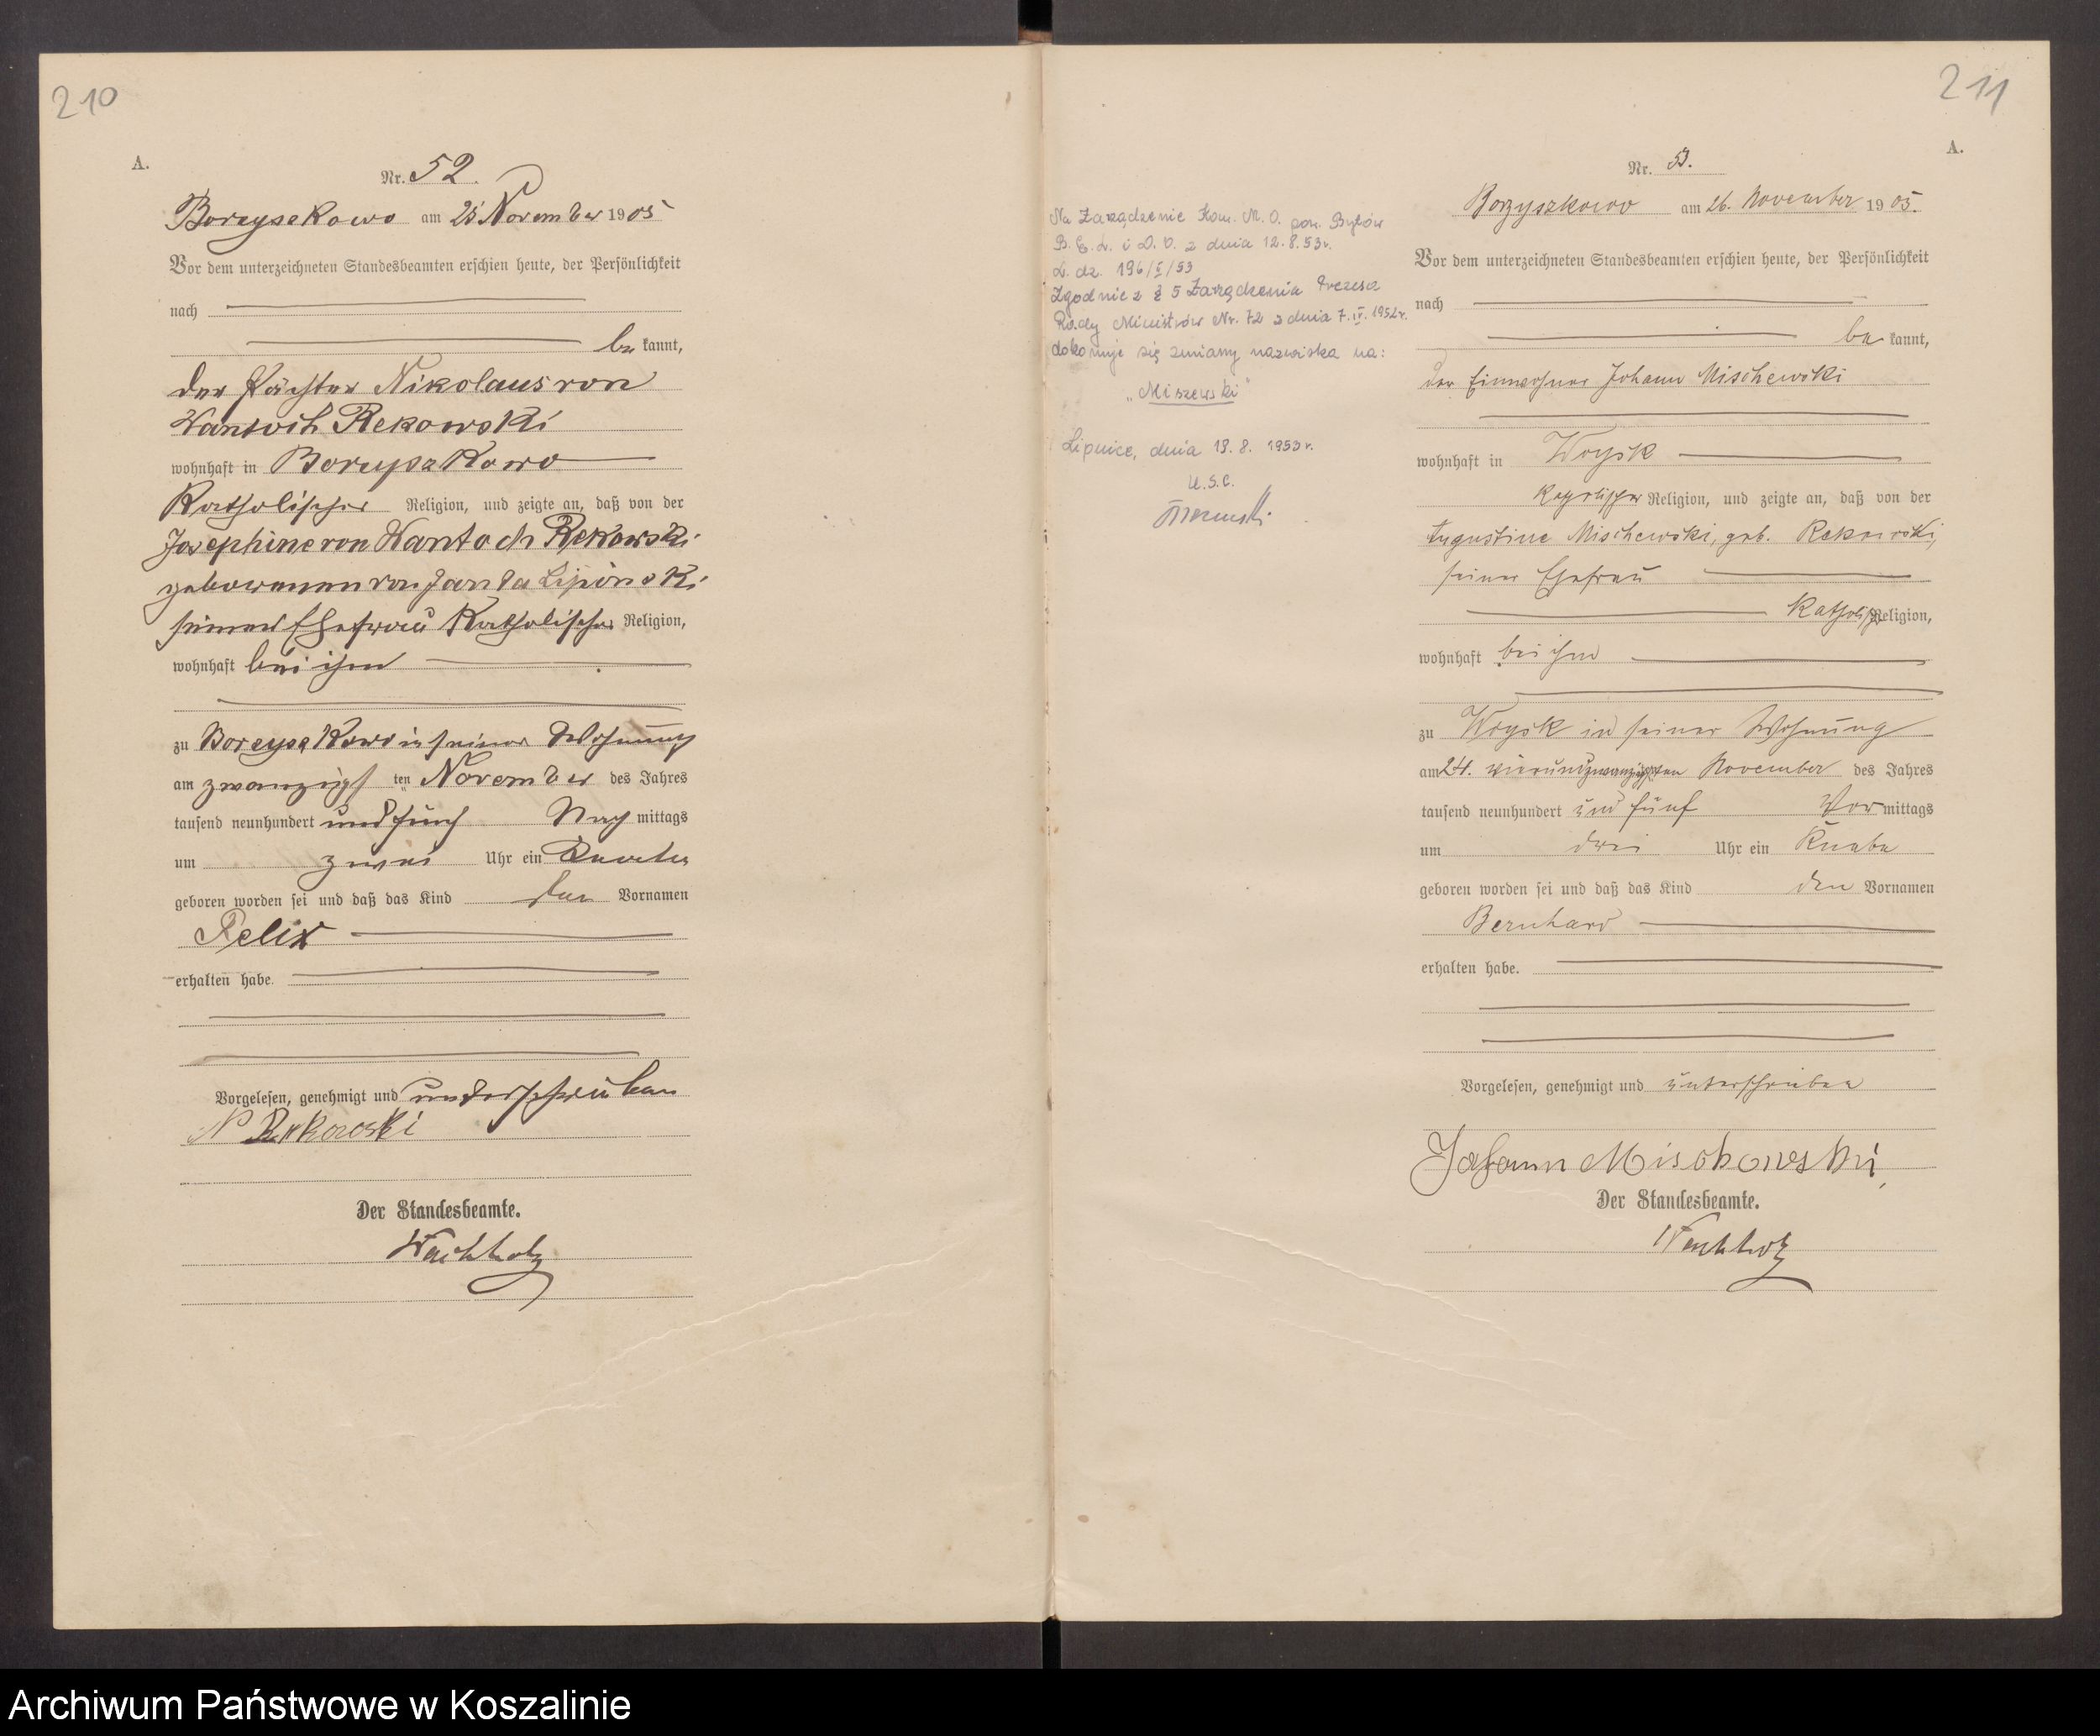 210
A.
Nr. 52.
Borzyszkowo am 25 November 1905
Vor dem unterzeichneten Standesbeamten erschien heute, der Persönlichkeit
nach
be kannt,
der Pächter Nikolaus von
Wantoch Rekowski
wohnhaft in Borzyszkowo
Katholischer Religion, und zeigte an, daß von der
Josephine von Wantoch Rekowski
geborenen von Janta Lipinski
seiner Ehefrau Katholischer Religion,
wohnhaft bei ihm
zu Borzyszkowo in seiner Wohnung
am zwanzigsten November des Jahres
tausend neunhundert und fünf Nach mittags
um zwei Uhr ein Knabe
geboren worden sei und daß das Kind den Vornamen
Felix
erhalten habe.
Vorgelesen, genehmigt und unterschrieben
N Rekowski
Der Standesbeamte.
Wachholz
211
A.
Nr. 53.
Borzyszkowo am 26. November 1905.
Na Zarządzenie Kom. M.O. pow. Bytów
B. E. L. i D. O. z dnia 12.8.53r.
L. dz. 196/I/53
Zgodnie z § 5 Zarządzenia Prezesa
Rady Ministrów Nr. 72 z dnia 7.IV.1952r.
dokonuje się zmiany nazwiska na:
„Miszewski"
Lipnice, dnia 18.8.1953r.
U.S.C.
Vor dem unterzeichneten Standesbeamten erschien heute, der Persönlichkeit
nach
be kannt,
der Einwohner Johann Mischewski
wohnhaft in Woysk
katholischer Religion, und zeigte an, daß von der
Augustine Mischewski, geb. Rekowski,
seiner Ehefrau
Katholisch Religion,
wohnhaft bei ihm
zu Woysk in seiner Wohnung
am 24. vierundzwanzigsten November des Jahres
tausend neunhundert und fünf Vor mittags
um drei Uhr ein Knabe
geboren worden sei und daß das Kind den Vornamen
Bernhard
erhalten habe.
Vorgelesen, genehmigt und unterschrieben
Johann Mischewski
Der Standesbeamte.
Wachholz
Archiwum Państwowe w Koszalinie